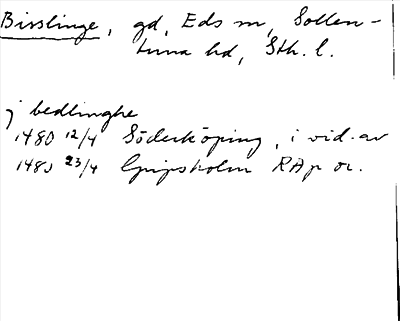 Bisslinge, gd, Eds sn, Sollen-
tuna hd, Sth. l.
j bedlinghe
1480 12/4 Söderköping, i vid. av
148 23/4 Gripsholm RAp or.